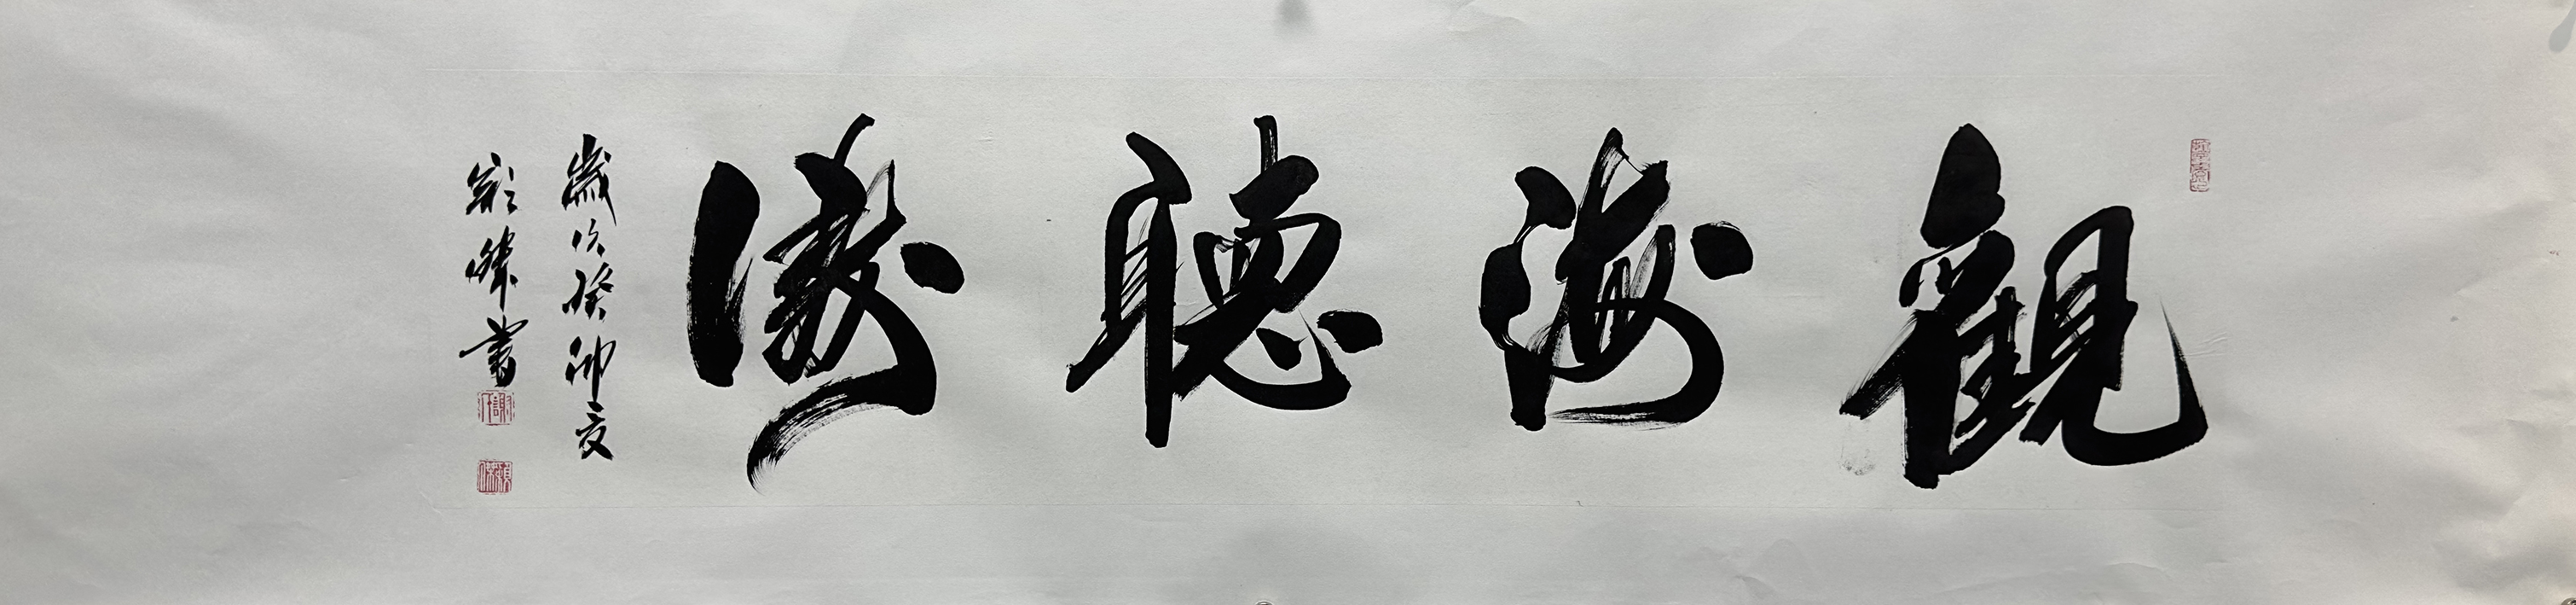 觀海聽濤
歲次癸卯夏
穎儀書